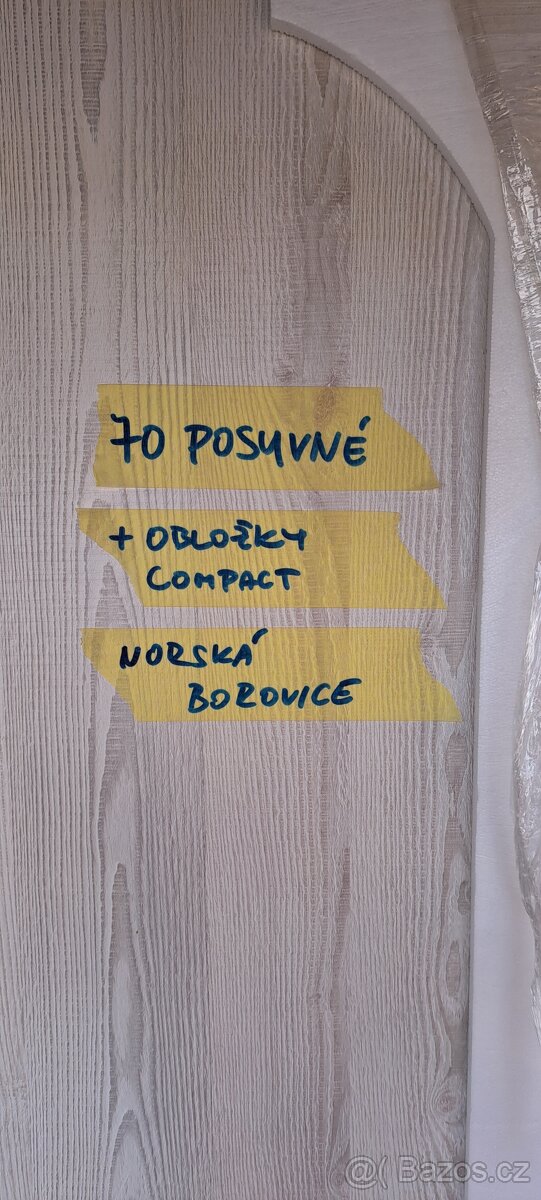 70 POSUVNÉ
+ OBLOŽKY
COMPACT
NORSKÁ
BOROVICE
@( Bazos.cz